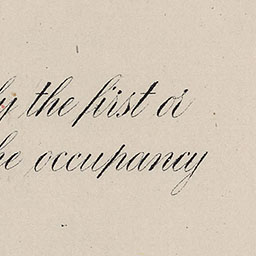 ly the first or
he occupancy